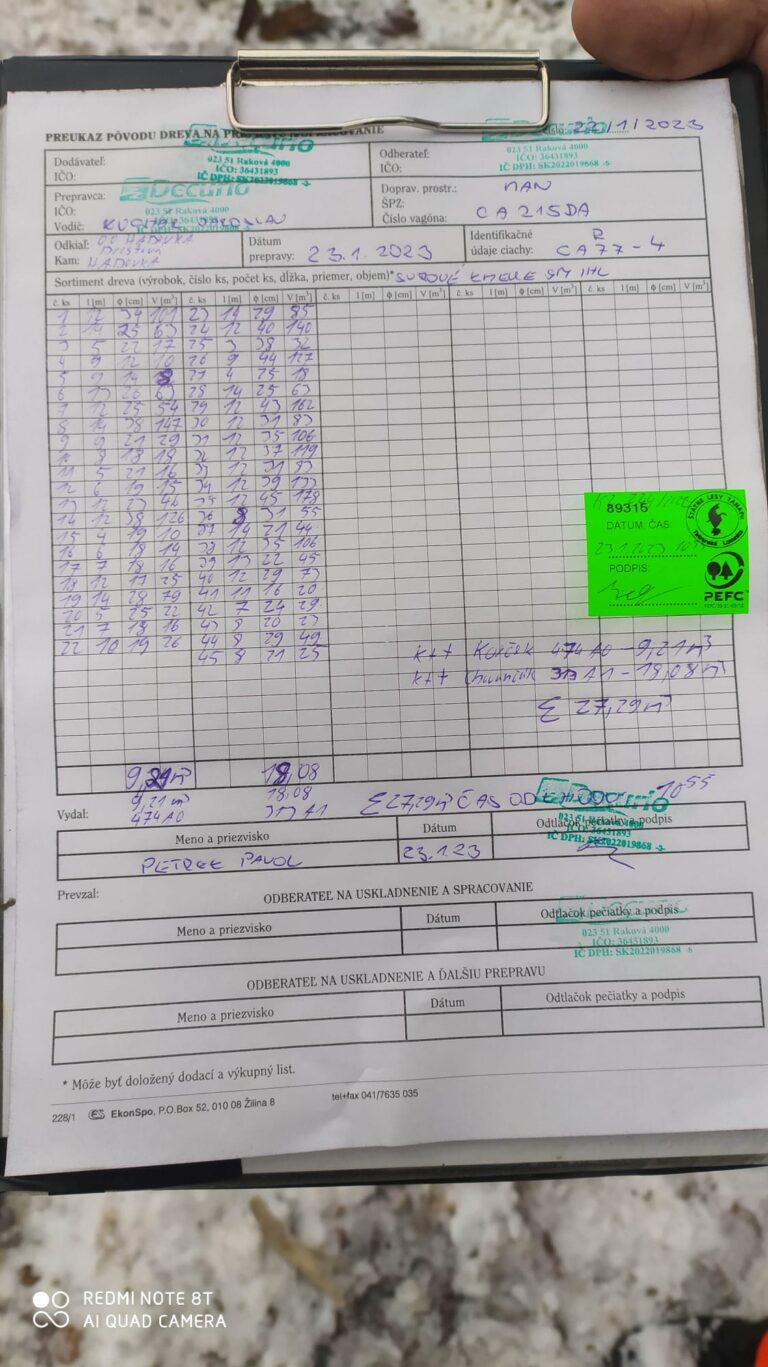 PREUKAZ PÔVODU DREVA NA
Číslo: 22/1/2023
Dodávateľ:
IČO:
Decurio
023 51 Raková 4000
IČO: 36431893
IČ DPH: SK2022019868
Odberateľ:
IČO:
023 51 Raková 4000
IČO: 36431893
IČ DPH: SK2022019868
Prepravca:
IČO:
Vodič:
Decurio
023 51 Raková 4000
Doprav. prostr.: MAN
ŠPZ:
Číslo vagóna: CA 215DA
Odkiaľ:
Kam: HABOVKA
Dátum
prepravy: 23.1.2023
Identifikačné
údaje ciachy: CA77-4
Sortiment dreva (výrobok, číslo ks, počet ks, dĺžka, priemer, objem)* SUROVÉ KMENE SM IHL
č. ks l [m] ϕ [cm] V [m³] č. ks l [m] ϕ [cm] V [m³] č. ks l [m] ϕ [cm] V [m³] č. ks l [m] ϕ [cm] V [m³] č. ks l [m] ϕ [cm] V [m³]
1 12 34 101 23 14 29 85
2 14 25 63 24 12 40 140
3 5 22 17 25 3 38 32
4 9 12 10 26 9 44 127
5 9 8 27 4 25 18
6 13 26 63 28 14 25 63
7 12 25 54 29 12 43 162
8 14 38 147 30 12 31 83
9 9 21 29 31 12 35 106
10 8 18 18 32 12 37 119
11 5 21 16 33 12 31 83
12 6 19 15 34 12 39 133
13 12 23 46 35 12 45 178
14 12 38 126 36 8 31 55
15 4 19 10 37 14 21 44
16 6 18 14 38 12 35 106
17 7 18 16 39 13 22 45
18 12 17 25 40 12 29 73
19 14 28 79 41 11 16 20
20 5 25 22 42 7 24 29
21 7 18 16 43 8 20 23
22 10 19 26 44 8 29 49
45 8 21 25
89315
DATUM ČAS
23.1.2023
PODPIS:
ŠTÁTNE LESY TANAPU
Tatranská Lomnica
PEFC
474 A0 - 9,21 m³
313 A1 - 18,08 m³
Σ 27,29 m³
9,21 m³ 18,08
9,21 m³ 18.08
474 A0 313 A1
Σ 27,29 m³ ČAS ODCHODU 10 55
Vydal:
Meno a priezvisko Dátum Odtlačok pečiatky a podpis
PETREK PAVOL 23.1.23
Decurio
023 51 Raková 4000
IČO: 36431893
IČ DPH: SK2022019868
Prevzal:
ODBERATEĽ NA USKLADNENIE A SPRACOVANIE
Meno a priezvisko Dátum Odtlačok pečiatky a podpis
023 51 Raková 4000
IČO: 36431893
IČ DPH: SK2022019868
ODBERATEĽ NA USKLADNENIE A ĎALŠIU PREPRAVU
Meno a priezvisko Dátum Odtlačok pečiatky a podpis
* Môže byť doložený dodací a výkupný list.
228/1 EkonSpo, P.O.Box 52, 010 08 Žilina 8 tel+fax 041/7635 035
REDMI NOTE 8T
AI QUAD CAMERA